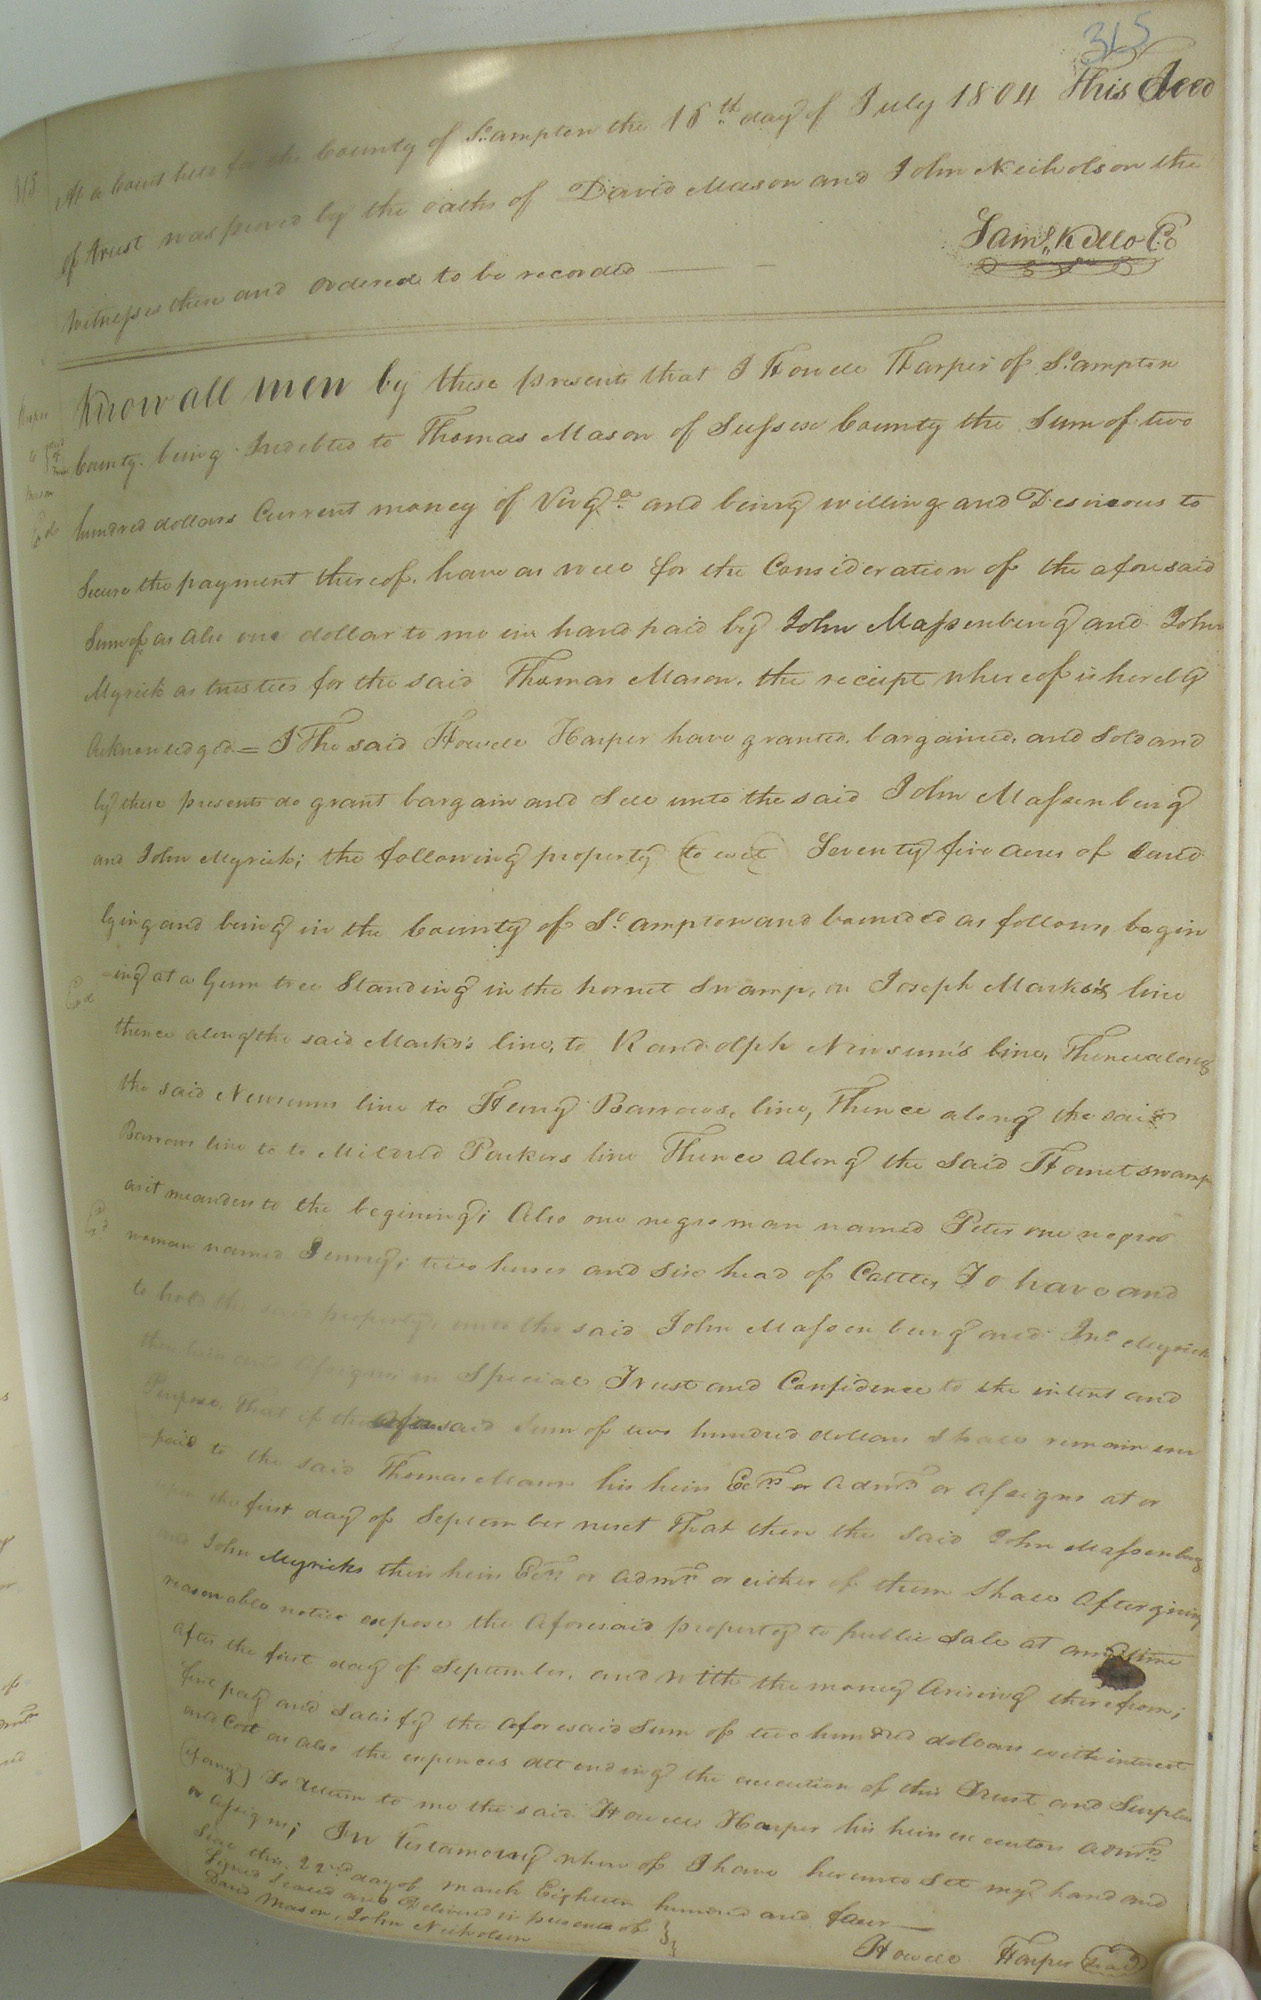 315
At a Court held for the County of So.ampton the 16th day of July 1804 This Deed
of trust was proved by the oaths of David Mason and John Nicholson the
witnesses thereto and ordered to be recorded
Saml. Kello C
Know all men by these presents that I Howell Harper of So.ampton
County being Indebted to Thomas Mason of Sussex County the Sum of two
hundred dollars Current money of Virga. and being willing and Desirous to
Secure the payment thereof, have as well for the Consideration of the aforesaid
Sum of as also one dollar to me in hand paid by John Massenburg and John
Myrick as trustees for the said Thomas Mason, the receipt whereof is hereby
Acknowledged = I The said Howell Harper have granted, bargained, and Sold and
by these presents do grant bargain and Sell unto the said John Massenburg
and John Myrick; the following property (to wit) Seventy five acres of Land
lying and being in the County of So.ampton and bounded as follows, begin
-ing at a Gum tree Standing in the hornet Swamp, on Joseph Marks's line
thence along the said Marks's line, to Randolph Newsum's line, Thence along
the said Newsums line to Henry Barrows, line, Thence along the said
Barrows line to to Mildred Parkers line Thence along the Said Hornet swamp
as it meanders to the begining; Also one negro man named Peter one negroe
woman named Jenney; two horses and Six head of Cattle, To have and
to hold the said property, unto the said John Massenburg and Jno. Myrick
their heirs and Assigns in Special Trust and Confidence to the intent and
Purpose, that if the aforesaid Sum of two hundred dollars shall remain un
-paid to the said Thomas Mason his heirs Exrs or Admrs or Assigns at or
upon the first day of September next That then the said John Massenburg
and John Myricks their heirs Exrs or Admrs or either of them Shall After giving
reasonable notice expose the Aforesaid property to public Sale at any time
After the first day of September, and with the money Arising therefrom;
first pay and Satisfy the Aforesaid Sum of two hundred dollars with interest
and Cost as also the expences attending the execution of this Trust and Surplus
(if any) to return to me the said Howell Harper his heirs executors Admrs
or Assigns; In Testamony whereof I have hereunto Set my hand and
Seal this 22nd day of March Eighteen hundred and four
Signed Sealed and Delivered in presents of
David Mason, John Nicholson
Howell Harper (seal)